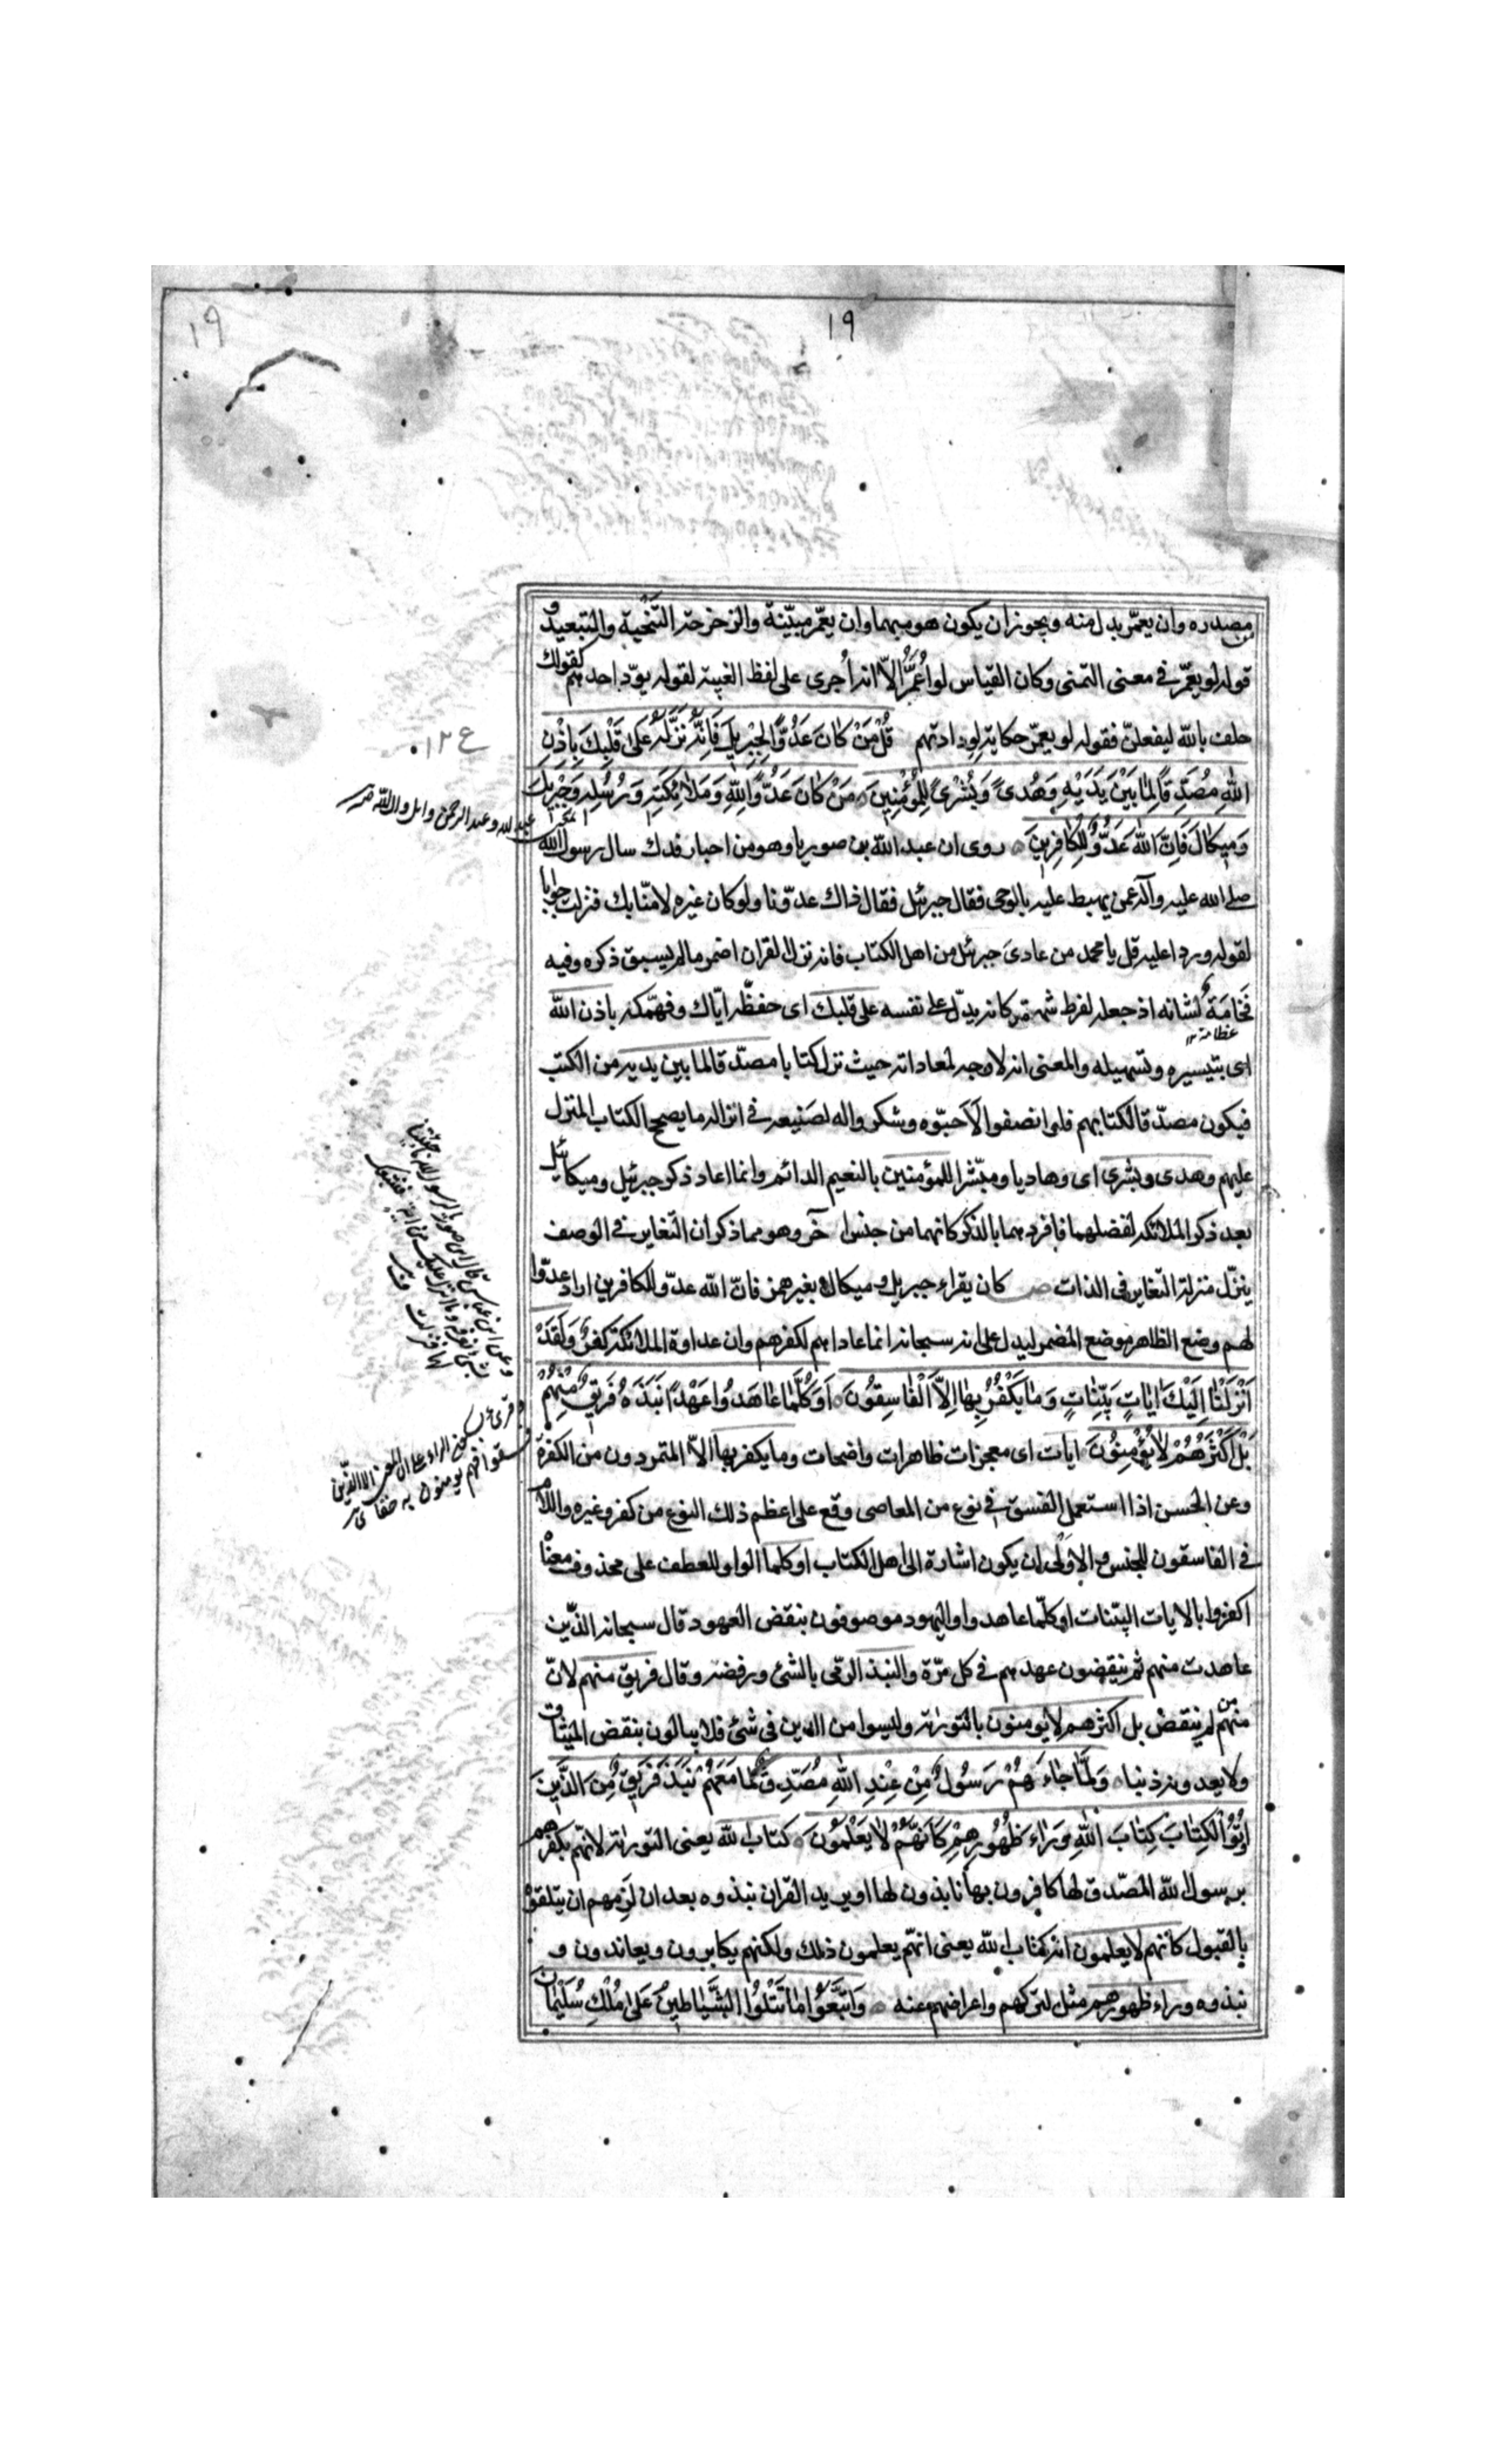 ١٩
١٩
مصدره وان يعمّر بدل منه ويجوز ان يكون هو مبهما وان يعمّر مبيّنة والزحزحة التنحية والتبعيد و
قوله لو يعمّر في معنى التمنى وكان القياس لو اُعَمَّرُ الاّ انه اُجرى على لفظ الغيبة لقوله يودّ احدهم كقولك
حلف بالله ليفعلنّ فقوله لو يعمّر حكاية لودادتهم قُلْ مَنْ كٰانَ عَدُوًّا لِجِبْرِيلَ فَاِنَّهُ نَزَّلَهُ عَلىٰ قَلْبِكَ بِاِذْنِ
اللهِ مُصَدِّقًا لِمٰا بَيْنَ يَدَيْهِ وَهُدىً وَبُشْرىٰ لِلْمُؤْمِنِينَ مَنْ كٰانَ عَدُوًّا لِلّٰهِ وَمَلاٰئِكَتِهِ وَرُسُلِهِ وَجِبْرِيلَ
وَمِيكٰالَ فَاِنَّ اللهَ عَدُوٌّ لِلْكٰافِرِينَ روى ان عبد الله بن صوريا وهو من احبار فدك سال رسول الله
صلى الله عليه وآله عمن يهبط عليه بالوحى فقال جبرئيل فقال ذاك عدوّنا ولو كان غيره لامنّا بك فنزلت جوابا
لقوله وردا عليه قل يا محمد من عادىَ جبرئيل من اهل الكتاب فانه نزل القران اضمر مالم يسبق ذكره وفيه
فَخامَةٌ لشانه اذ جعله لفرط شهرته كانه يدلّ على نفسه على قلبك اى حفظه ايّاك وفهّمكه باذن الله
عظامة
اى بتيسيره وتسهيله والمعنى انه لا وجه لمعاداته حيث نزل كتابا مصدّقا لما بين يديه من الكتب
فيكون مصدّقا لكتابهم فلو انصفوا لاَحبّوه وشكروا له لصَنيعه في انزاله ما يصحح الكتاب المنزل
عليهم وهدى وبشرى اى وهاديا ومبشّرا للمؤمنين بالنعيم الدائم وانما اعاد ذكر جبرئيل وميكائيل
بعد ذكر الملائكة لفضلهما فافردهما بالذكر كانهما من جنس آخر وهو مما ذكر ان التغاير في الوصف
ينزّل منزلة التغاير فى الذات ص كان يقراء جبريل وميكال بغير همز فانّ الله عدوّ للكافرين اراد عدوّا
لهم وضع الظاهر موضع المضمر ليدل على انه سبحانه انما عاداهم لكفرهم وان عداوة الملائكة كفرٌ وَلَقَدْ
اَنْزَلْنٰا اِلَيْكَ اٰيٰاتٍ بَيِّنٰاتٍ وَمٰا يَكْفُرُ بِهٰا اِلاَّ الْفٰاسِقُونَ اَوَكُلَّمٰا عٰاهَدُوا عَهْدًا نَبَذَهُ فَرِيقٌ مِنْهُمْ
بَلْ اَكْثَرُهُمْ لاٰ يُؤْمِنُونَ ايات اى معجزات ظاهرات واضحات وما يكفر بها الاّ المتمردون من الكفرة
وعن الحسن اذا استعمل الفسق في نوع من المعاصى وقع على اعظم ذلك النوع من كفر وغيره واللام
في الفاسقون للجنس والاولى ان يكون اشارة الى اهل الكتاب اوكلما الواو للعطف على محذوف معناه
اكفروا بالايات البيّنات اوكلّما عاهدوا واليهود موصوفون بنقض العهود قال سبحانه الذّين
عاهدت منهم ثم ينقضون عهدهم في كل مرّة والنبذ الرمى بالشئ ورفضه وقال فريق منهم لانّ
منهم من لم ينقض بل اكثرهم لا يومنون بالتوراة وليسوا من الدين فى شئ فلا يبالون بنقض الميثاق
ولا يعدونه ذنبا وَلَمّٰا جٰاءَهُمْ رَسُولٌ مِنْ عِنْدِ اللهِ مُصَدِّقٌ لِمٰا مَعَهُمْ نَبَذَ فَرِيقٌ مِنَ الَّذِينَ
اُوتُوا الْكِتٰابَ كِتٰابَ اللهِ وَرٰاءَ ظُهُورِهِمْ كَاَنَّهُمْ لاٰ يَعْلَمُونَ كتاب الله يعنى التوراة لانّهم بكفرهم
برسول الله المصدّق لها كافرون بها نابذون لها او يريد القران نبذوه بعد ان لَزِمهم ان يتلقوه
بالقبول كانهم لا يعلمون انه كتاب الله يعنى انّهم يعلمون ذلك ولكنهم يكابرون ويعاندون و
نبذوه وراء ظهورهم مثل لتركهم واعراضهم عنه وَاتَّبَعُوا مٰا تَتْلُوا الشَّيٰاطِينُ عَلىٰ مُلْكِ سُلَيْمٰانَ
عبد الله وعبد الرحمن
وعن ابن عباس قال ابن صوريا لرسول الله ما جئتنا
بشئ نعرفه وما انزل عليك من اية فنتبعك
لها فنزلت